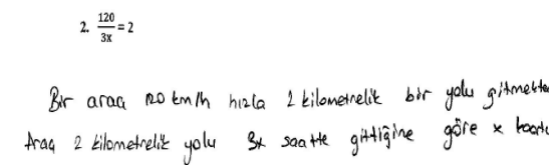 2. 120/3x = 2
Bir araç 120 km/h hızla 2 kilometrelik bir yolu gitmekte
Araç 2 kilometrelik yolu 3x saatte gittiğine göre x kaçtı